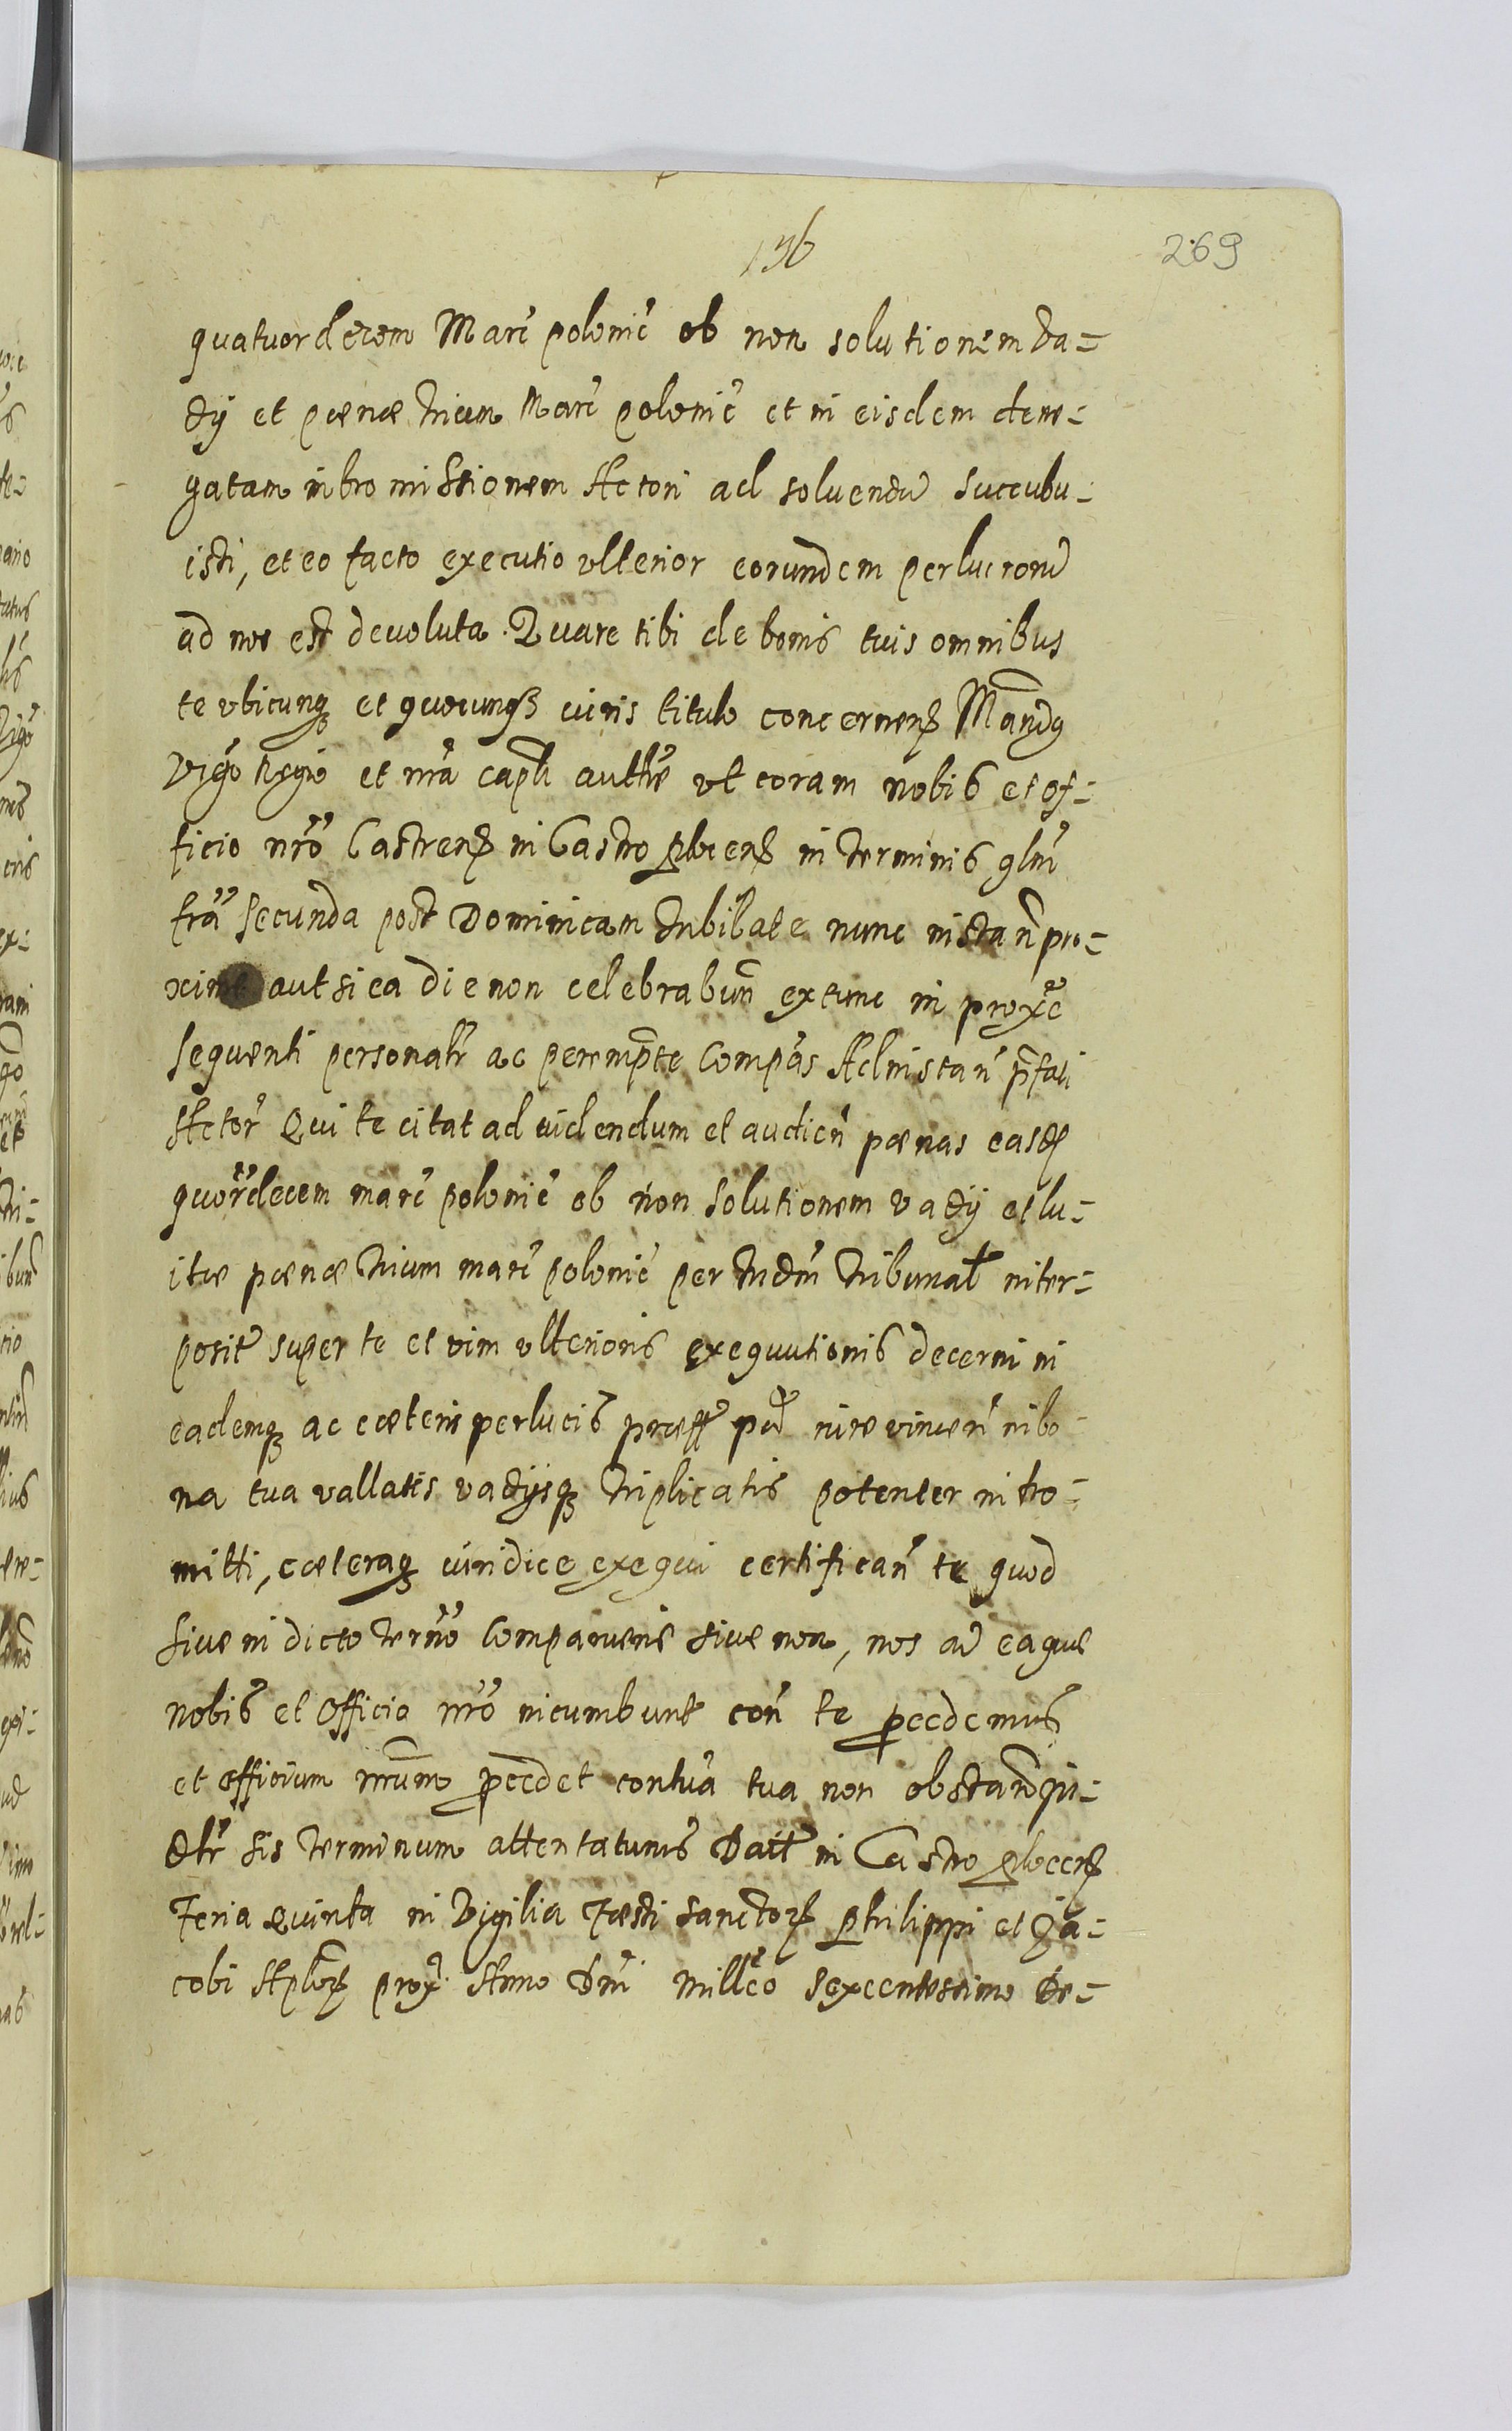 196
269
quatuordecem Marc̃ polonic̃ ob non solutionem Va=
dÿ et pœnæ trium Marc̃ polonic̃ et in eisdem dene=
gatam intromissionem Actori ad soluendũ succubu=
isti, et eo facto executio vlterior eorundem perlucrorũ
ad nos est devoluta. Quare tibi de bonis tuis omnibus
te vbicunq₃ et quocunq₃ iuris titulo concernen̄ Mandg
Vigo Regio et nr̃a capli authẽ vt coram nobis et of=
ficio nr̃o Castren̄ in Castro plocen̄ in terminis qlni
fr̃a secunda post Dominicam Iubilate nunc instañ pro=
xime aut si ea die non celebrabuñ extunc in proxe
sequenti personalr̃ ac perempte compãs Ad instañ pfati
Actor̃ Qui te citat ad videndum et audień pœnas easd
quor̃decem marc̃ polonic̃ ob non solutionem vadÿ et lu=
itæ pœnæ trium marc̃ polonic̃ per Iudm̃ tribunal interp=
posit̃ super te et vim vlterioris exequutionis decerni in
eademq₃ ac cæteris perlucis præss pd iure vinceñ in bo=
na tua vallatis vadÿsq₃ triplicatis potenter intro=
mitti, cæteraq₃ iuridice exequi certificañ te quod
siue in dicto termo̊ comparueris siue non, nos ad ea quæ
nobis et Officio nr̃o incumbunt con̄ te pcedemus
et officium nr̃um pcedet contu̅a tua non obstan̄ pu=
dtr̃ sis terminum attentaturus Dat̃ in Castro plocen̄
Feria Quinta in Vigilia Fæsti Sanctor̄ Philippi et Ja=
cobi Aplor̄ prox̃ Anno Dni Milleo sexcentessimo De=